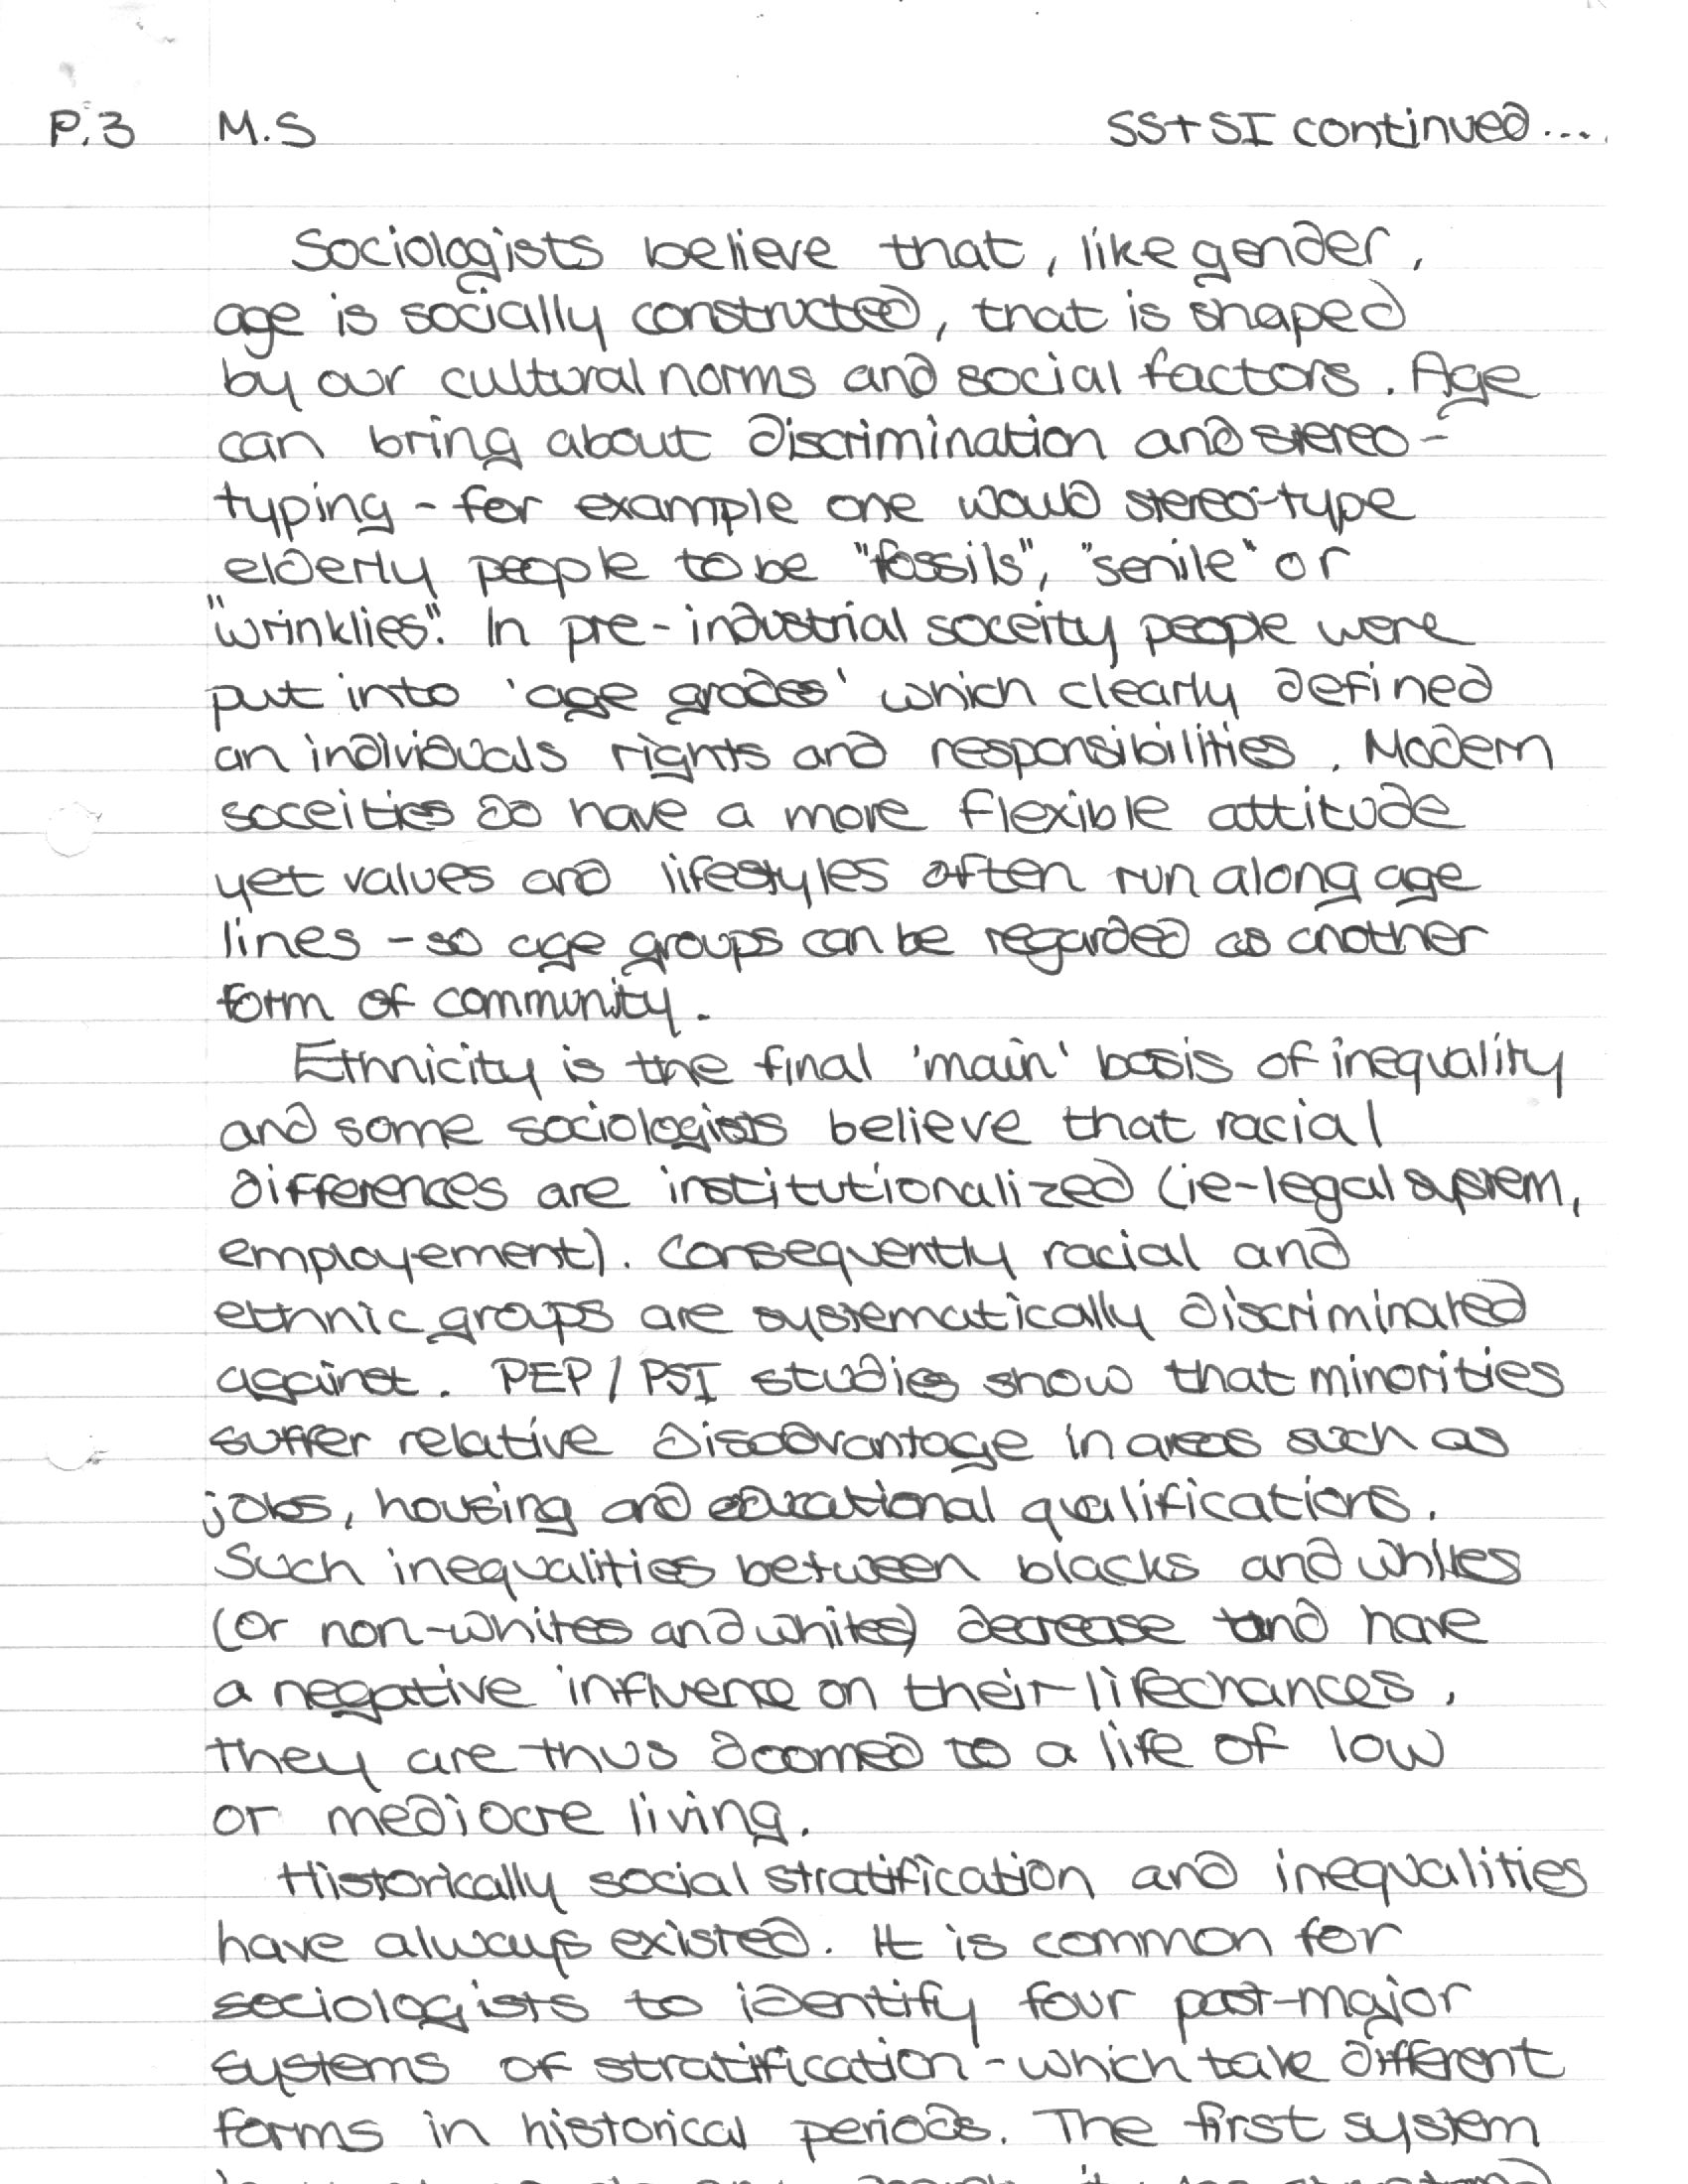 P.3 M.S SS+SI continued....
Sociologists believe that, like gender,
age is socially constructed, that is shaped
by our cultural norms and social factors. Age
can bring about discrimination and stereo-
typing - for example one would stereo-type
elderly people to be "fossils", "senile" or
"wrinklies". In pre-industrial soceity people were
put into 'age grades' which clearly defined
an individuals rights and responsibilities. Modern
soceities do have a more flexible attitude
yet values and lifestyles often run along age
lines - so age groups can be regarded as another
form of community.
Ethnicity is the final 'main' basis of inequality
and some sociologists believe that racial
differences are institutionalized (ie-legal system,
employement). Consequently racial and
ethnic groups are systematically discriminated
against. PEP/PSI studies show that minorities
suffer relative disadvantage in areas such as
jobs, housing and educational qualifications.
Such inequalities between blacks and whites
(or non-whites and whites) decrease and have
a negative influence on their lifechances,
they are thus doomed to a life of low
or mediocre living.
Historically social stratification and inequalities
have always existed. It is common for
sociologists to identify four past-major
systems of stratification - which take different
forms in historical periods. The first system